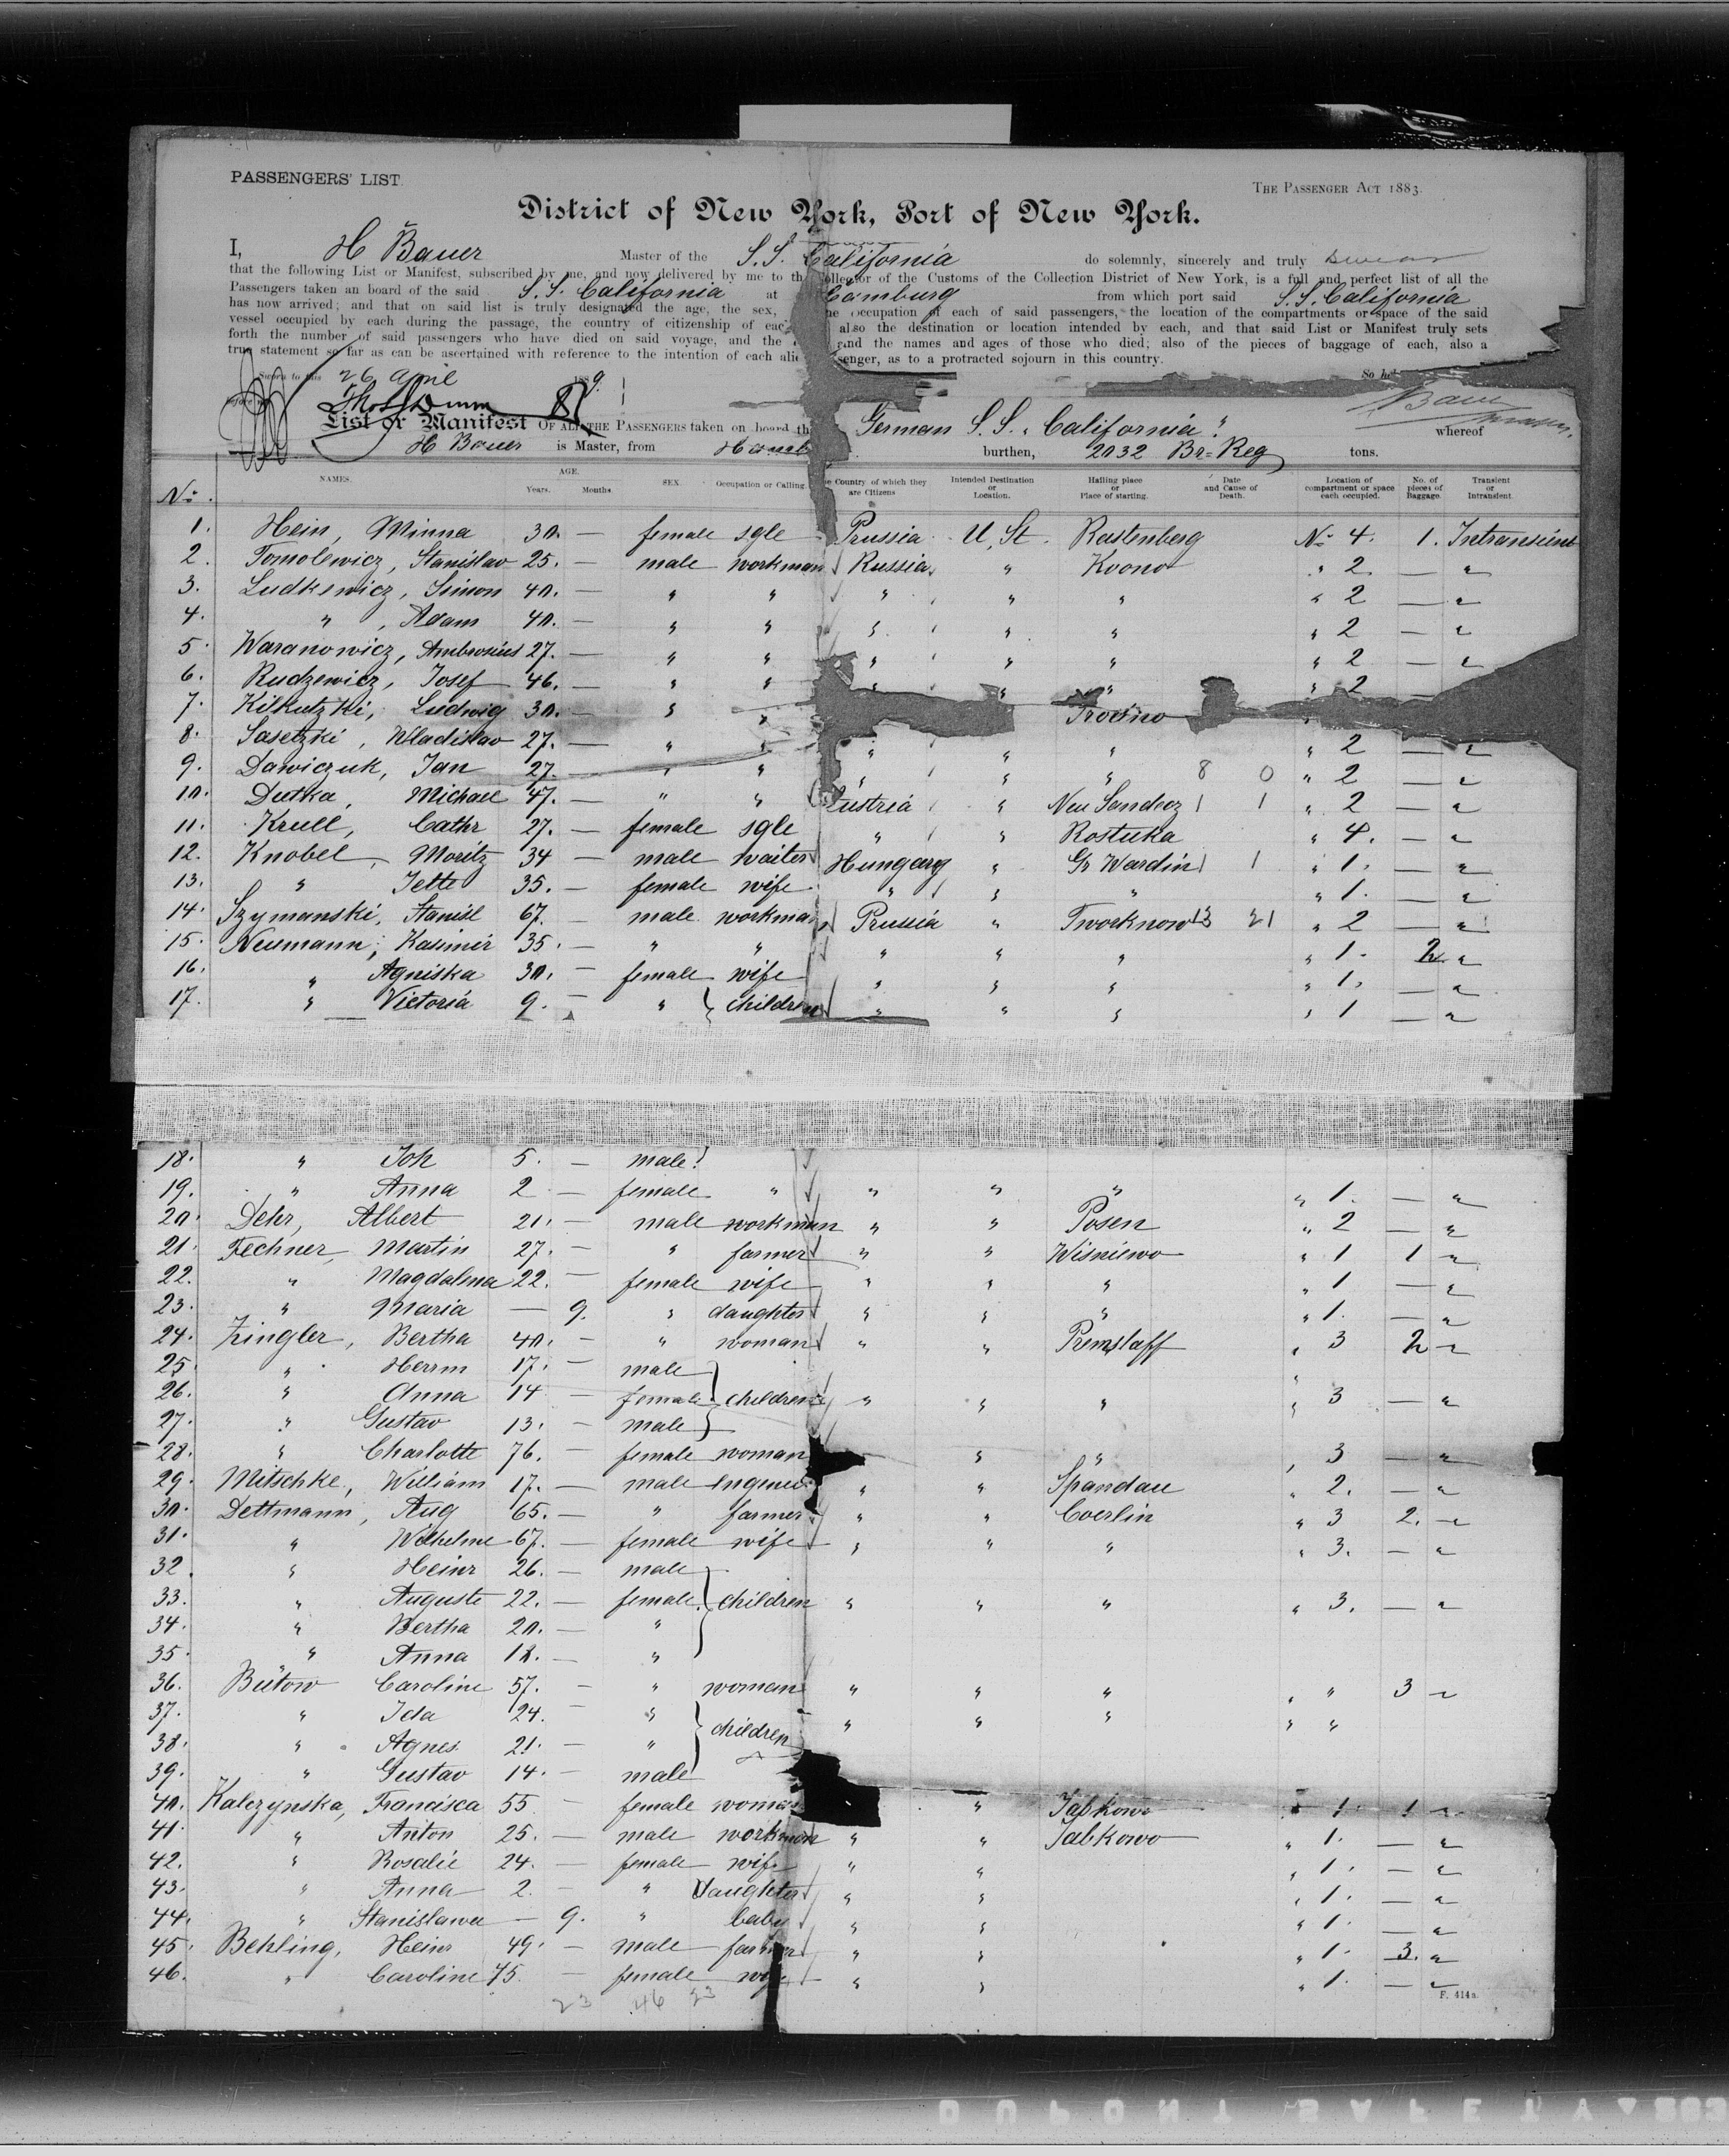 PASSENGERS' LIST.
THE PASSENGER ACT 1883.
District of New York, Port of New York.
I, H Bauer Master of the S.S. California do solemnly, sincerely and truly swear
that the following List or Manifest, subscribed by me, and now delivered by me to the Collector of the Customs of the Collection District of New York, is a full and perfect list of all the
Passengers taken an board of the said S.S. California at Hamburg from which port said S.S. California
has now arrived; and that on said list is truly designated the age, the sex, the occupation of each of said passengers, the location of the compartments or space of the said
vessel occupied by each during the passage, the country of citizenship of each also the destination or location intended by each, and that said List or Manifest truly sets
forth the number of said passengers who have died on said voyage, and the and the names and ages of those who died; also of the pieces of baggage of each, also a
true statement so far as can be ascertained with reference to the intention of each alien senger, as to a protracted sojourn in this country.
Sworn to this 26 April 1889. So hel
before me Bauer
List or Manifest OF ALL THE PASSENGERS taken on board the German S.S. "California" whereof
H Bauer is Master, from Hamb burthen, 2032 Br=Reg tons.
No. NAMES. AGE. Years. Months. SEX. Occupation or Calling. e Country of which they are Citizens Intended Destination or Location. Hailing place or Place of starting. Date and Cause of Death. Location of compartment or space each occupied. No. of pieces of Baggage. Transient or Intransient.
1. Hein, Minna 30. — female sgle Prussia U. St. Rastenberg No 4. 1. Intransient
2. Tomolewicz, Stanislav 25. — male workman Russia " Kovno " 2. — "
3. Ludkewicz, Simon 40. — " " " " " " 2 — "
4. " , Adam 40. — " " " " " " 2 — "
5. Waranowicz, Ambrosius 27. — " " " " " " 2 — "
6. Rudzewicz, Josef 46. — " " " " " " 2
7. Kilkutzki, Ludwig 30. — " "
8. Sasetzki, Wladislav 27. — " " " " " " 2 — "
9. Dawiczuk, Jan 27. — " " " " " 8 0 " 2 — "
10. Dutka, Michael 47. — " " Austria " Neu Sandecz 1 1 " 2 — "
11. Krull, Cathr 27. — female sgle " " Rostuka " 4. — "
12. Knobel, Moritz 34 — male waiter Hungary " Gr Wardin 1 1 " 1. — "
13. " Jette 35. — female wife " " " " 1. — "
14. Szymanski, Stanisl 67. — male workman Prussia " Tworknow 13 21 " 2 — "
15. Neumann, Kasimir 35. — " " " " " " 1. 2 "
16. " Agniska 30. — female wife " " " " 1. — "
17. " Victoria 9. — " children " " " " 1 — "
18. " Joh 5. — male
19. " Anna 2 — female " " " " " 1. — "
20. Dehr, Albert 21. — male workman " " Posen " 2 — "
21. Fechner, Martin 27. — " farmer " " Wisniewo " 1 1 "
22. " Magdalena 22. — female wife " " " " 1 — "
23. " Maria — 9. " daughter " " " " 1. — "
24. Zingler, Bertha 40. — " woman " " Premslaff " 3 2 "
25. " Herrm 17. — male "
26. " Anna 14 — female children " " " " 3 — "
27. " Gustav 13. — male
28. " Charlotte 76. — female woman " " , 3 — "
29. Mitschke, William 17. — male " " Spandau " 2. — "
30. Dettmann, Aug 65. — " farmer " " Coerlin " 3 2. "
31. " Wilhelme 67. — female wife " " " " 3. — "
32. " Heinr 26. — male
33. " Auguste 22. — female children " " " " 3. — "
34. " Bertha 20. — "
35. " Anna 12. — "
36. Bütow Caroline 57. — " woman " " " " " 3 "
37. " Ida 24. " children " " " " "
38. " Agnes 21. — "
39. " Gustav 14. — male
40. Kalczynska, Francisca 55 female woman " Jabkowo " 1. 1 "
41. " Anton 25. — male workman " " Jabkowo " 1. — "
42. " Rosalie 24. — female wife " " " 1. — "
43. " Anna 2. — " daughter " " " 1. — "
44. " Stanislawa — 9. " baby " " " 1. — "
45. Behling, Heinr 49. — male farmer " " " 1. 3. "
46. " Caroline 45. — female wife " " " 1. — "
23 46 23
F. 414a.
DUPONT SAFETY